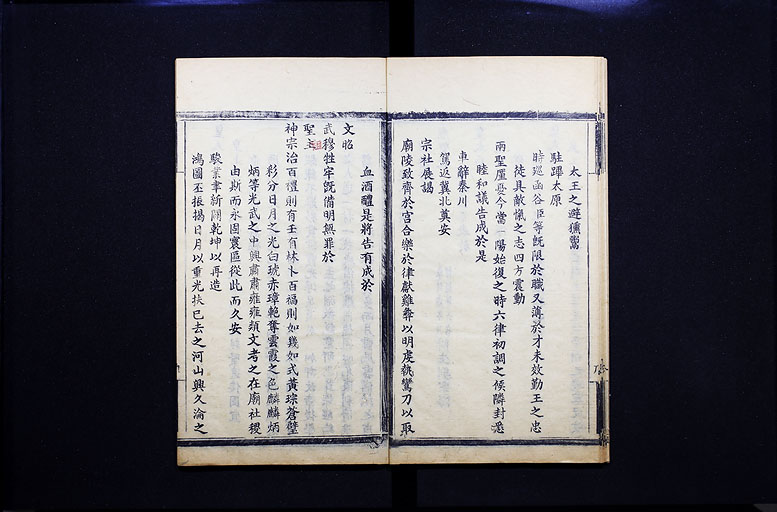 太王之避獯鬻
駐蹕太原
時巡函谷臣等既限於職又薄於才未效勤王之忠
徒具敵愾之志四方震動
兩聖廑憂今當一陽始復之時六律初調之候隣封悉
睦和議告成於是
車辭秦川
駕返冀北奠安
宗社展謁
廟陵致齊於宮合樂於律獻雞彝以明虔執鸞刀以取
血酒醴是將告有成於
文昭
武穆牲牢既備明無罪於
聖主
神宗治百禮則有壬有林卜百福則如幾如式黃琮蒼璧
彩分日月之光白琥赤璋艷奪雲霞之色麟麟炳
炳等光武之中興肅肅雍雍頌文考之在廟社稷
由斯而永固寰區從此而久安
駿業聿新闢乾坤以再造
鴻圖丕振揚日月以重光扶已去之河山興久淪之